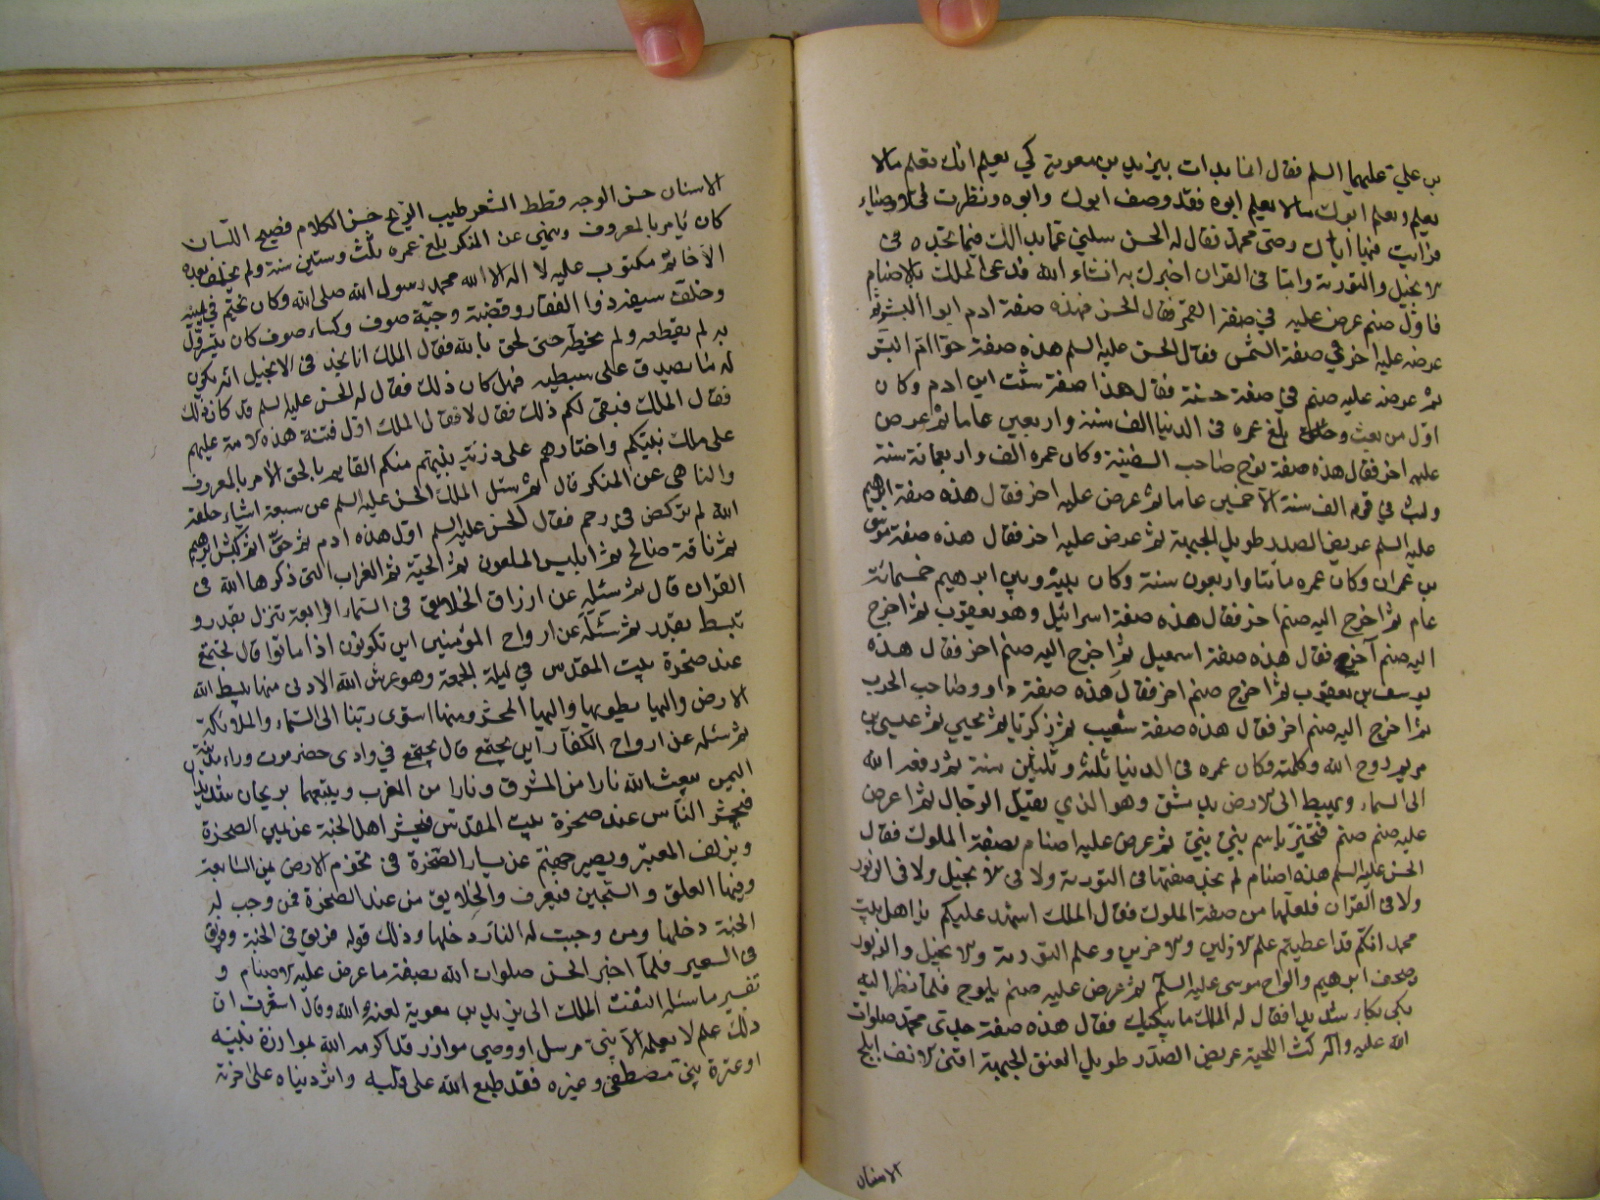 بن علي عليهما السلم فقال انما بدات بيزيد بن معوية كي يعلم انك تعلم مالا
يعلم ويعلم ابوك مالا يعلم ابوه فقد وصف ابوك وابوه ونظرت في الاوصياء
فرايت فيها اباك وصي محمد فقال له الحسن سلني عما بدالك فيما تجده في
الانجيل والتورية وانما في القران اخبرك به انشاء الله فدعى الملك بالاصنام
فاول صنم عرض عليه في صفة القمر فقال الحسن فهذه صفة ادم ابوا البشر ثم
عرض عليه اخر في صفة الشمس فقال الحسن عليه السلم هذه صفة حوا ام البشر
ثم عرض عليه صنم في صفة حسنة فقال هذا صفة شث ابن ادم وكان
اول من بعث وخلق بلغ عمره في الدنيا الف سنة واربعين عاما ثم عرض
عليه اخر فقال هذه صفة نوح صاحب السفينة وكان عمره الف واربعمائة سنة
ولبث في قومه الف سنة الا خمسين عاما ثم عرض عليه اخر فقال هذه صفة ابرهيم
عليه السلم عريض الصدر طويل الجبهة ثم عرض عليه اخر فقال هذه صفة موسى
بن عمران وكان عمره مائتا واربعون سنة وكان بينه وبين ابرهيم خمسمائة
عام ثم اخرج اليه صنم اخر فقال هذه صفة اسرائيل وهو يعقوب ثم اخرج
اليه صنم آخر فقال هذه صفة اسمعيل ثم اخرج اليه صنم اخر فقال هذه
يوسف بن يعقوب ثم اخرج صنم اخر فقال هذه صفة داود صاحب الحرب
ثم اخرج اليه صنم اخر فقال هذه صفة شعيب ثم زكريا ثم يحيي ثم عيسى بن
مريم روح الله وكلمته وكان عمره في الدنيا ثلثة وثلثين سنة ثم رفعه الله
الى السماء ويهبط الى الارض بدمشق وهو الذي يقتل الدجال ثم اعرض
عليه صنم صنم فتخبر باسم نبي نبي ثم عرض عليه اصنام بصفة الملوك فقال
الحسن عليه السلم هذه اصنام لم نجد صفتها في التورية ولا في الانجيل ولا في الزبور
ولا في القران فلعلها من صفة الملوك فقال الملك اشهد عليكم يا اهل بيت
محمد انكم قد اعطيتم علم الاولين والاخرين وعلم التورية والانجيل والزبور
وصحف ابرهيم والواح موسى عليه السلم ثم عرض عليه صنم يلوح فلما نظر اليه
بكى بكاء شديدا فقال له الملك ما يبكيك فقال هذه صفة جدي محمد صلوات
الله عليه واله كث اللحية عريض الصدر طويل العنق الجبهة اقنى الانف ابلج
الاسنان
الاسنان حسن الوجه قطط الشعر طيب الريح حسن الكلام فصيح اللسان
كان يامر بالمعروف وينهي عن المنكر بلغ عمره ثلث وستين سنة ولم يخلف بعده
الا خاتم مكتوب عليه لا اله الا الله محمد رسول الله صلى الله وكان يختم في يمينه
وخلف سيفه ذوا الفقار وقضيبه وجبة صوف وكساء صوف كان يتسرول
به لم يقطعه ولم يخيطه حتى لحق بالله فقال الملك انا نجد في الانجيل انه يكون
له ما يصدق على سبطيه فهل كان ذلك فقال له الحسن عليه السلم قد كان ذلك
فقال الملك فبقي لكم ذلك فقال لا فقال الملك اول فتنة هذه الامة عليهم
على ملك نبيكم واختارهم على ذرية نبيهم منكم القايم بالحق الامر بالمعروف
والناهي عن المنكر قال ثم سئل الملك الحسن عليه السلم عن سبعة اشياء خلقه
الله لم تركض في رحم فقال الحسن عليه السلم اول هذه ادم ثم حوا ثم كبش ابرهيم
ثم ناقة صالح ثم ابليس الملعون ثم الحية ثم الغراب التي ذكرها الله في
القران قال ثم سئله عن ارزاق الخلايق في السماء الرابعة تنزل بقدر و
تبسط بقدر ثم سئله عن ارواح المؤمنين اين تكونون اذا ماتوا قال تجتمع
عند صخرة بيت المقدس في ليلة الجمعة وهو عرش الله الادنى منها يبسط الله
الارض واليها يطويها واليها المحشر ومنها استوى ربنا الى السماء والملائكة
ثم سئله عن ارواح الكفار اين تجتمع قال تجتمع في وادى حضرموت وراء مدينة
اليمن يبعث الله نارا من المشرق ونارا من المغرب ويتبعهما بريحان شديدان
فيحشر الناس عند صخرة بيت المقدس فيحشر اهل الجنة عن يمين الصخرة
ويزلف المعتبر ويصير جهنم عن يسار الصخرة في تخوم الارض يمين السابعة
وفيها العلق والسجين فيعرف والخلايق من عند الصخرة فمن وجب له
الجنة دخلها ومن وجبت له النار دخلها وذلك قوله فريق في الجنة وفريق
في السعير فلما اخبر الحسن صلوات الله بصفة ما عرض عليه الاصنام و
تفسير ما سئله التفت الملك الى يزيد بن معوية لعنه الله وقال اشعرت ان
ذلك علم لا يعلمه الا نبي مرسل او وصي موازر قد اكرمه الله بموازرة نبيه
او عترة نبي مصطفى وغيره فقد طبع الله على قلبه واثر دنياه على اخرته